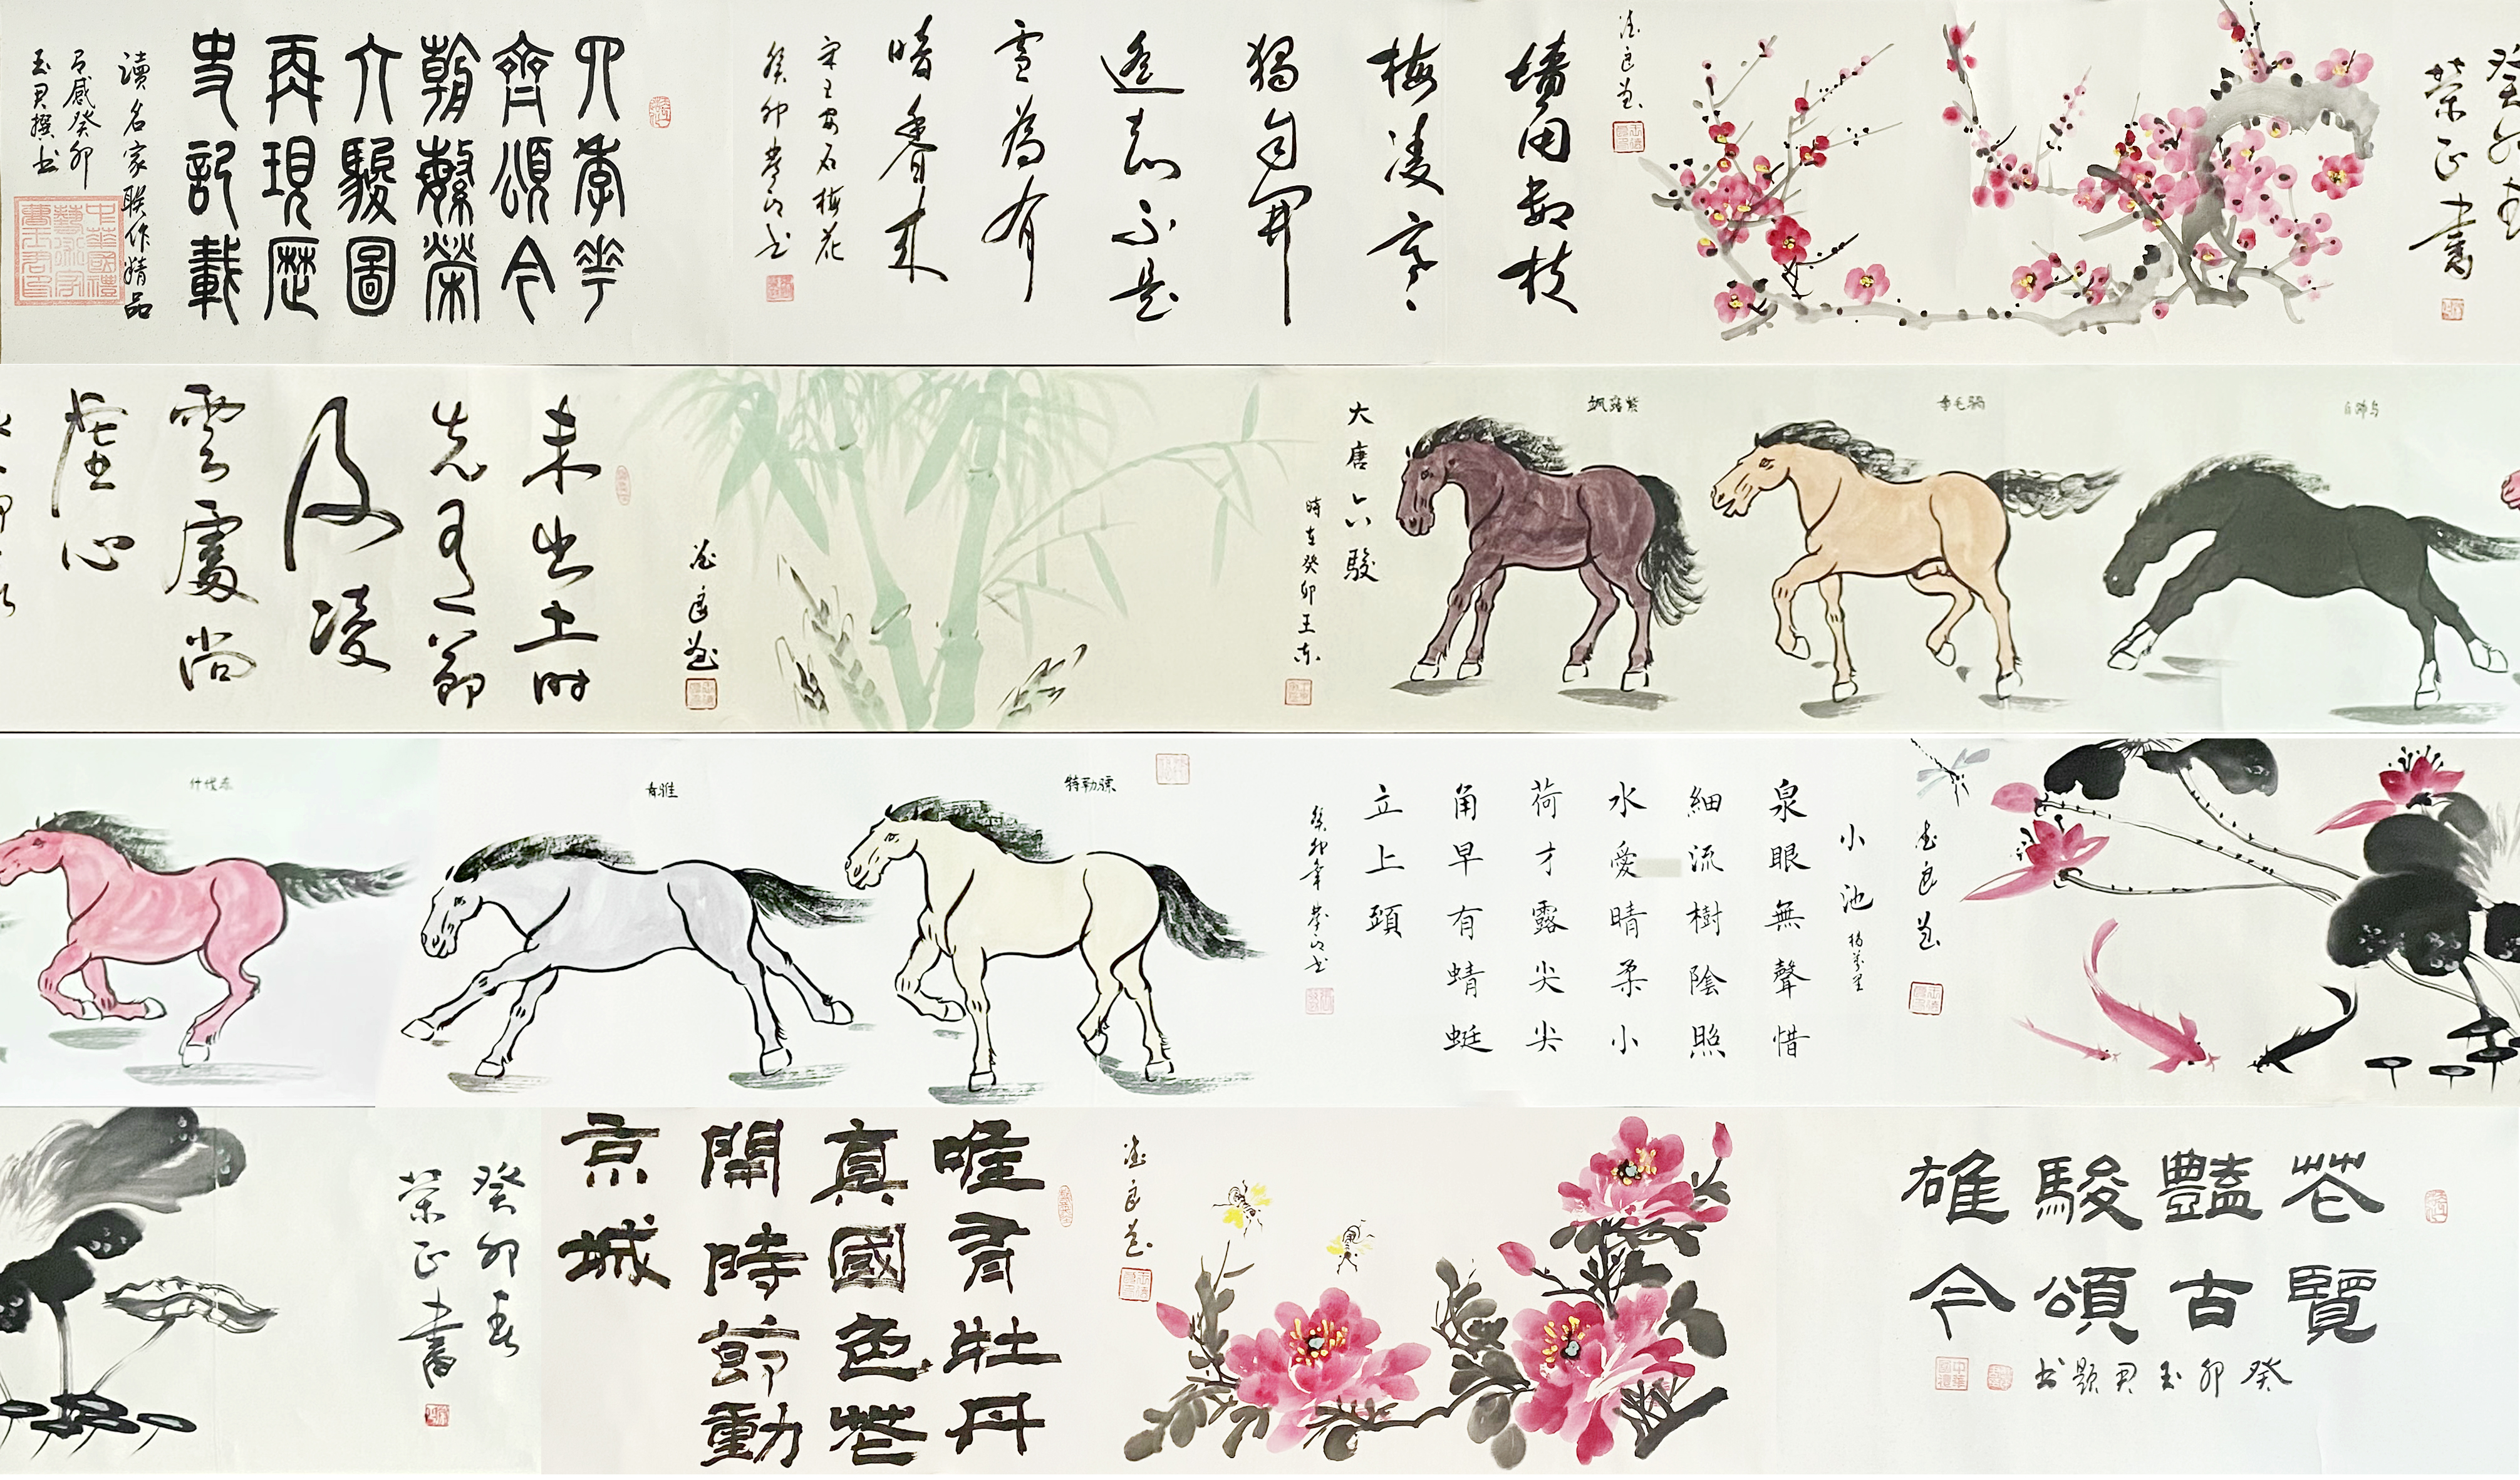 癸卯春
榮正書
德良画
墻角數枝
梅凌寒
獨自開
遙知不是
雪為有
暗香來
宋王安石梅花
癸卯
四季花
齊頌今
朝繁榮
六駿圖
再現歷
史記載
讀名家聯作精品
有感癸卯
玉君撰书
白蹄烏
拳毛騧
颯露紫
大唐六駿
時在癸卯王东
德良画
未出土時
先有節
及凌
雲處尚
虛心
德良画
小池 楊萬里
泉眼無聲惜
細流樹陰照
水愛晴柔小
荷才露尖尖
角早有蜻蜓
立上頭
癸卯年
特勒骠
青骓
什伐赤
花艷駿雄
覽古頌今
癸卯玉君題书
德良画
唯有牡丹
真國色花
開時節動
京城
癸卯春
榮正書